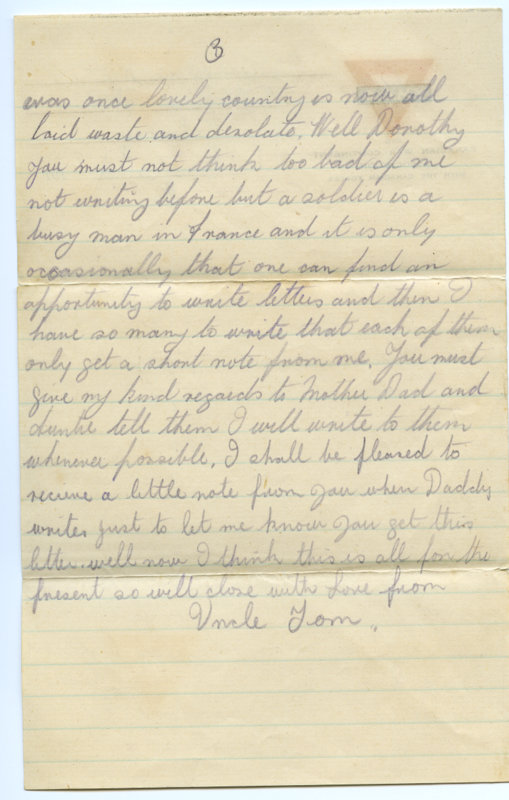 3
was once lovely country is now all
laid waste and desolate. Well Dorothy
you must not think too bad of me
not writing before but a soldier is a
busy man in France and it is only
occasionally that one can find an
opportunity to write letters and then I
have so many to write that each of them
only get a short note from me. You must
give my kind regards to Mother Dad and
Auntie tell them I will write to them
whenever possible. I shall be pleased to
recieve a little note from you when Daddy
writes just to let me know you get this
letter. well now I think this is all for the
present so will close with Love from
Uncle Tom.